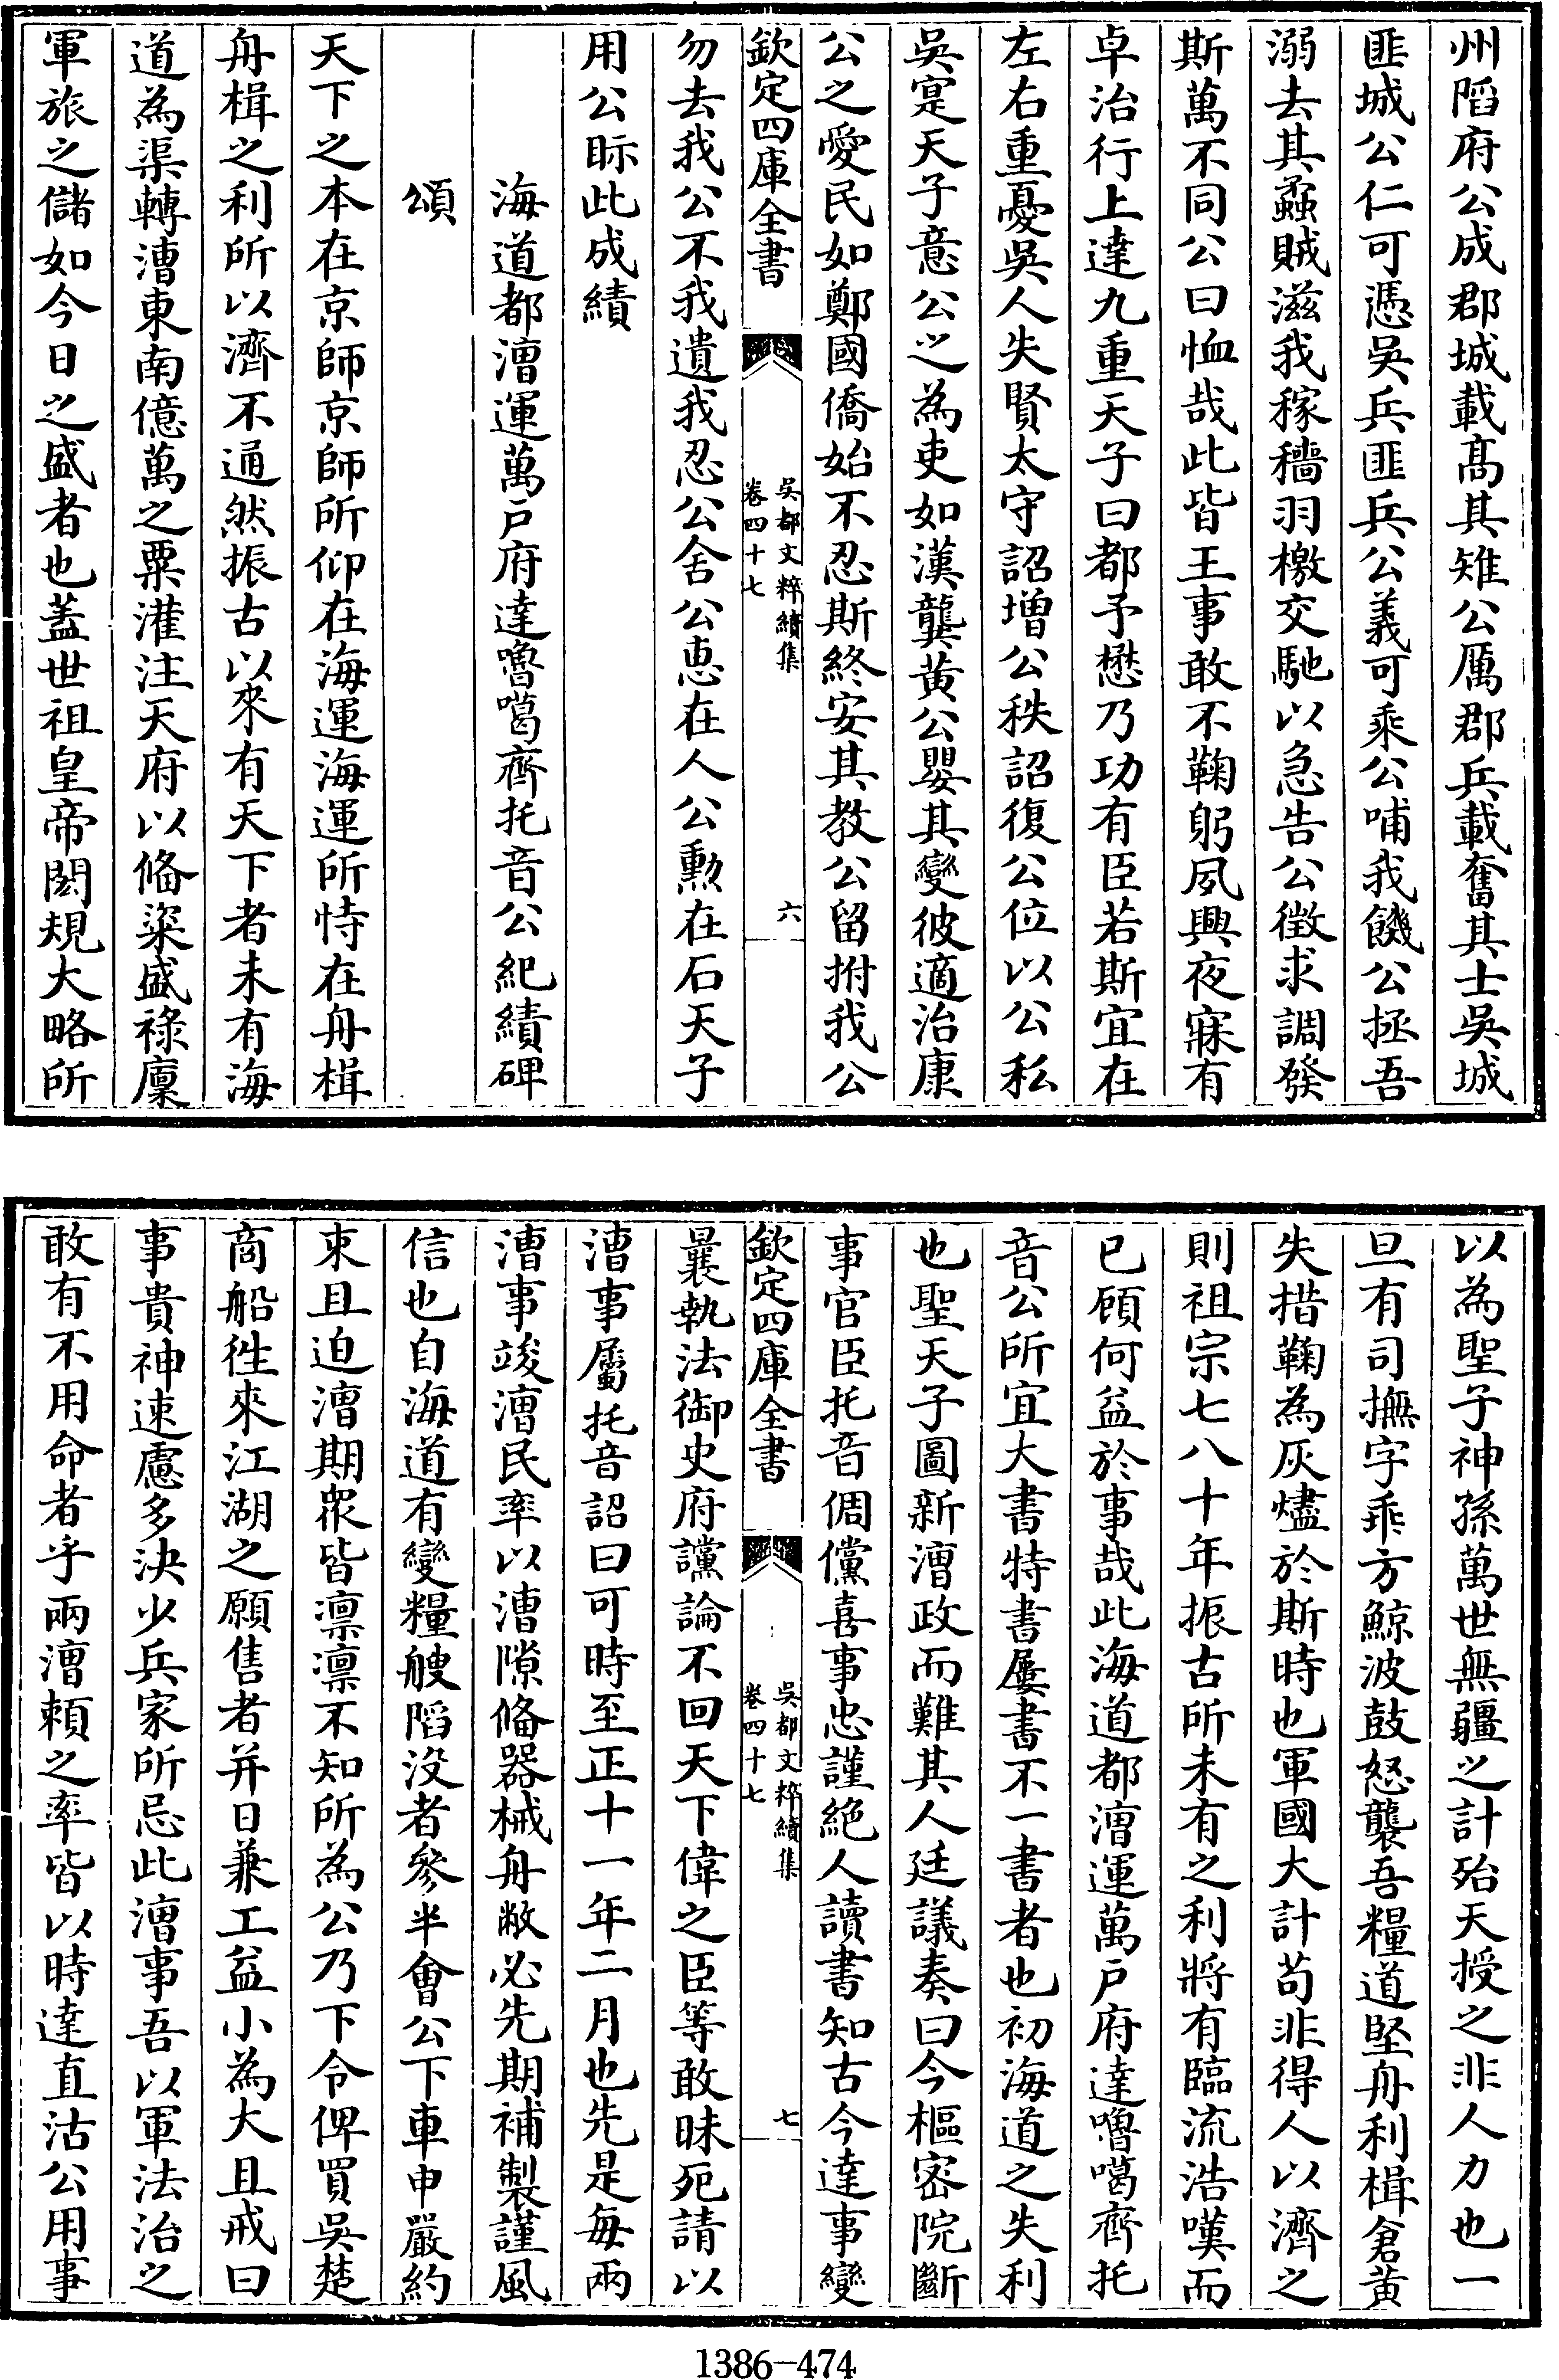 州䧟府公成郡城載髙其雉公厲郡兵載奮其士吳城
匪城公仁可憑吳兵匪兵公義可乘公哺我饑公拯吾
溺去其蟊賊滋我稼穡羽檄交馳以急告公徵求調發
斯萬不同公曰恤哉此皆王事敢不鞠躬夙興夜寐有
卓治行上達九重天子曰都予懋乃功有臣若斯宜在
左右重憂吳人失賢太守詔增公秩詔復公位以公私
吳寔天子意公之為吏如漢龔黄公嬰其變彼適治康
公之愛民如鄭國僑始不忍斯終安其教公留拊我公
欽定四庫全書
吳都文粹續集
卷四十七
六
勿去我公不我遺我忍公舍公恵在人公勲在石天子
用公眎此成績
海道都漕運萬户府達嚕噶齊托音公紀績碑
頌
天下之本在京師京師所仰在海運海運所恃在舟楫
舟楫之利所以濟不通然振古以來有天下者未有海
道為渠轉漕東南億萬之粟灌注天府以偹粢盛禄廩
軍旅之儲如今日之盛者也蓋世祖皇帝閎規大略所
以為聖子神孫萬世無疆之計殆天授之非人力也一
旦有司撫字乖方鯨波鼓怒襲吾糧道堅舟利楫倉黄
失措鞠為灰燼於斯時也軍國大計苟非得人以濟之
則祖宗七八十年振古所未有之利將有臨流浩嘆而
已顧何益於事哉此海道都漕運萬户府達嚕噶齊托
音公所宜大書特書屢書不一書者也初海道之失利
也聖天子圖新漕政而難其人廷議奏曰今樞密院斷
事官臣托音倜儻喜事忠謹絶人讀書知古今達事變
欽定四庫全書
吳都文粹續集
卷四十七
七
曩執法御史府讜論不回天下偉之臣等敢昧死請以
漕事屬托音詔曰可時至正十一年二月也先是每兩
漕事竣漕民率以漕隙偹器械舟敝必先期補製謹風
信也自海道有變糧艘䧟没者參半會公下車申嚴約
束且迫漕期衆皆凛凛不知所為公乃下令俾買吳楚
商船徃來江湖之願售者并日兼工益小為大且戒曰
事貴神速慮多決少兵家所忌此漕事吾以軍法治之
敢有不用命者乎兩漕頼之率皆以時達直沽公用事
1386-474